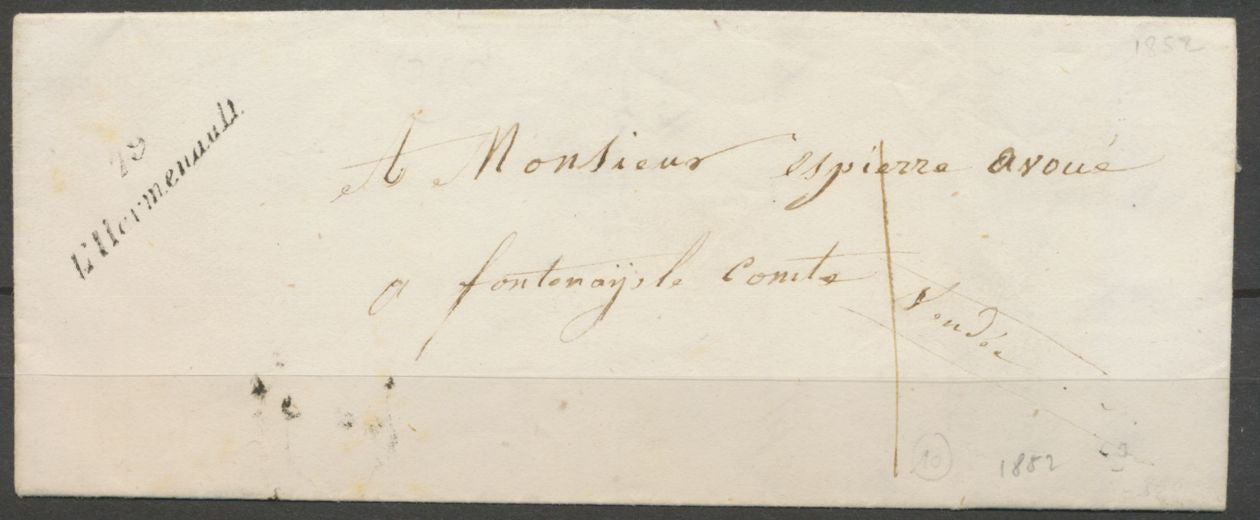 1852
79
L'Hermenault.
A Monsieur espierre avoué
a fontenay, le Comte
Vendée
10
1852